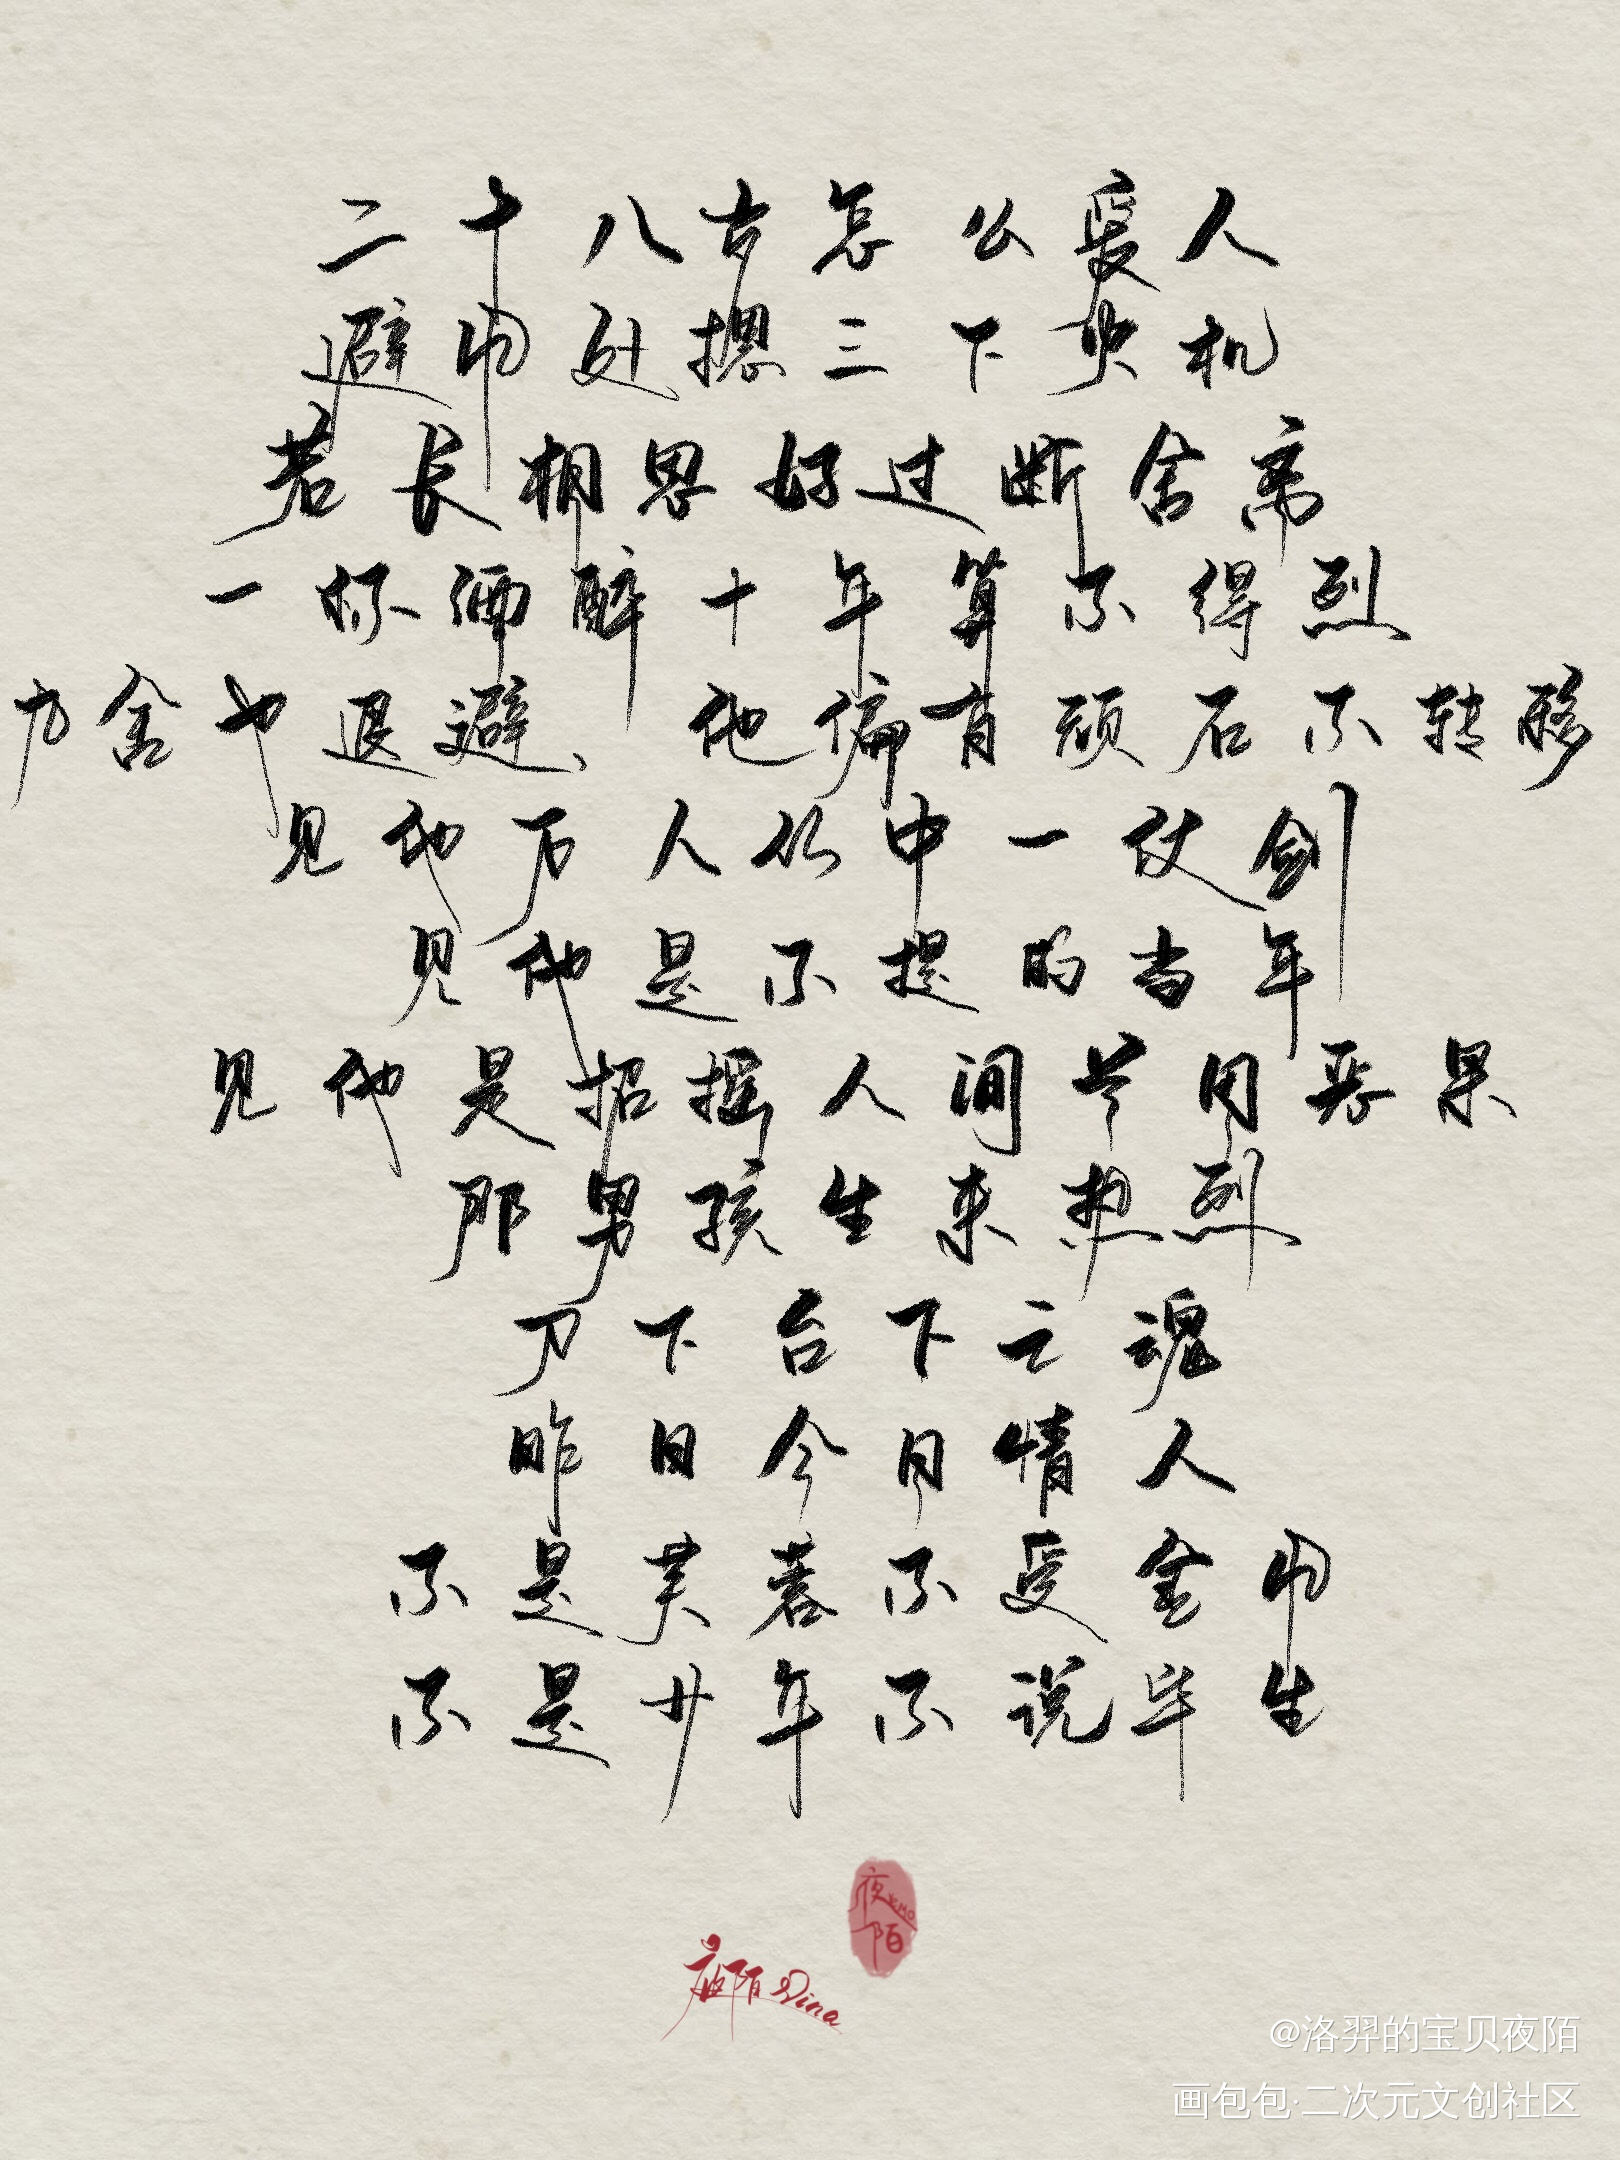 二十八岁怎么爱人
避巾处摁三下火机
若长相思好过断舍离
一杯酒醉十年算不得烈
方舍也退避、他偏有顽石不转移
见他万人从中一仗剑
见他是不提的当年
见他是招摇人间兰因恶果
那男孩生来热烈
刀下台下亡魂
昨日今日情人
不是芙蓉不受金巾
不是少年不说毕生
夜陌
夜陌 Dina
@洛羿的宝贝夜陌
画包包·二次元文创社区